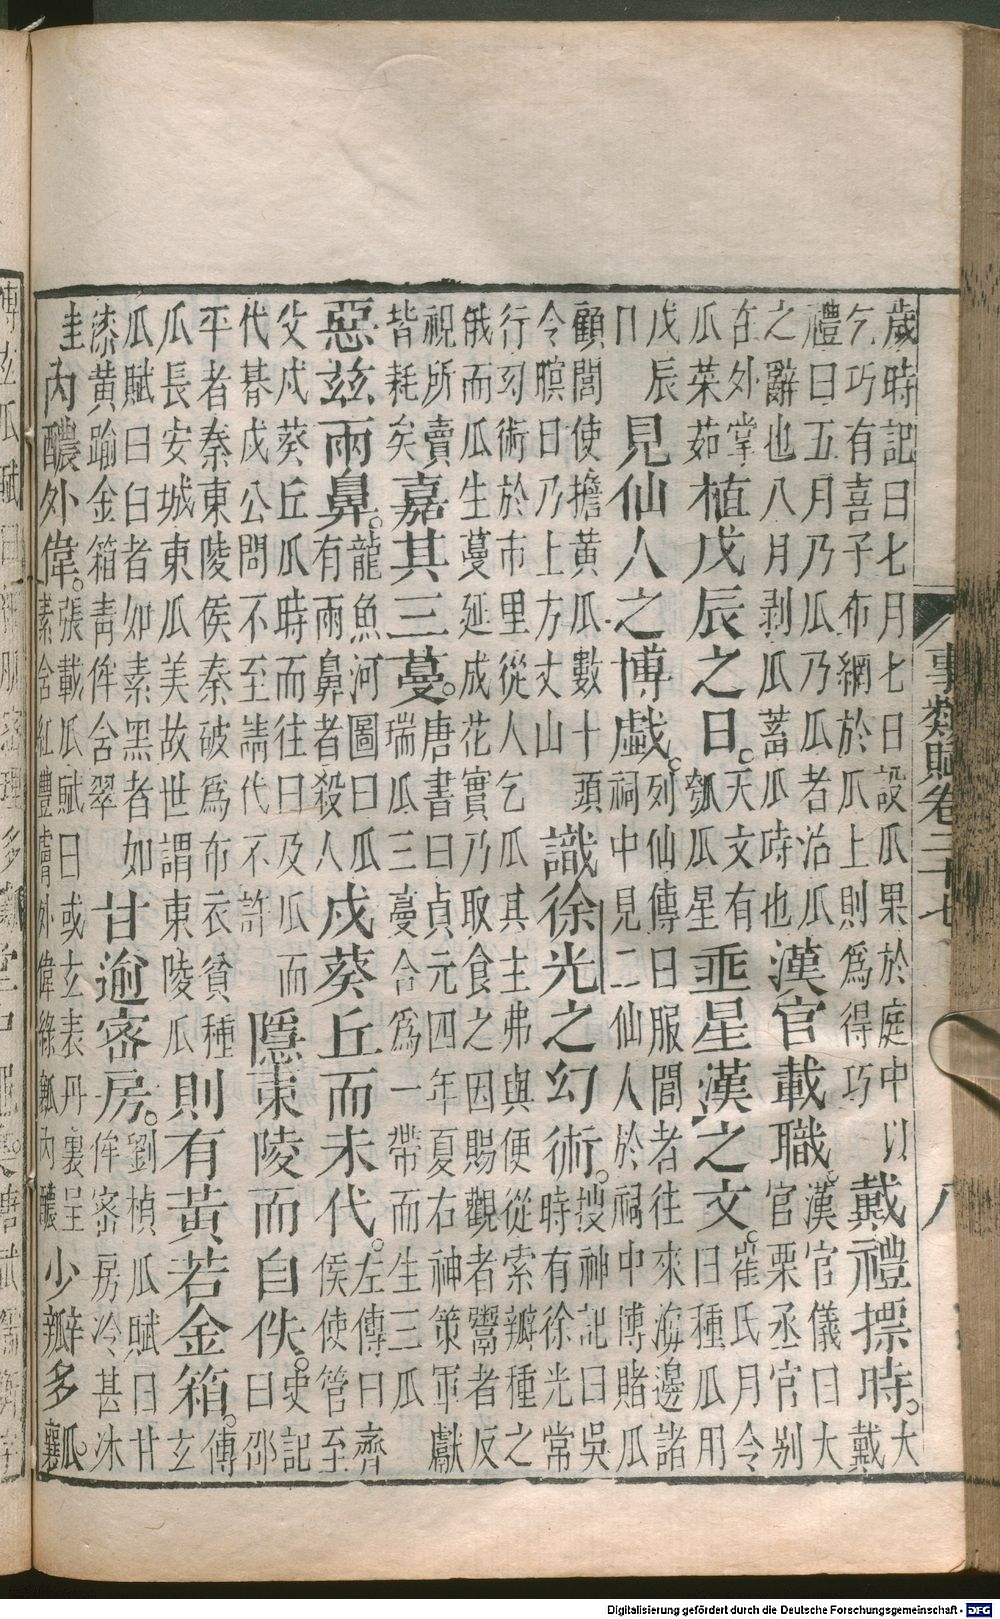 事類賦卷二十七 八
歲時記曰七月七日設瓜果於庭中以
乞巧有喜子布網於瓜上則爲得巧
戴禮摽時。
大
戴
禮曰五月乃瓜乃瓜者治瓜
之辭也八月剥瓜蓄瓜時也
漢官載職。
漢官儀曰大
官栗丞官别
在外掌
瓜菜茹
植戊辰之日。
天文有
瓠瓜星
乖星漢之文。
崔氏月令
曰種瓜用
戊辰
日
見仙人之博戲。
列仙傳曰服閭者往來海邊諸
祠中見二仙人於祠中博賭瓜
顧閭使擔黃瓜數十頭
令瞑目乃上方丈山
識徐光之幻術。
搜神記曰吳
時有徐光常
行幻術於市里從人乞瓜其主弗與便從索瓣種之
俄而瓜生蔓延成花實乃取食之因賜觀者鬻者反
視所賣
皆耗矣
嘉其三蔓。
唐書曰貞元四年夏右神策軍獻
瑞瓜三蔓合爲一帶而生三瓜
惡茲兩鼻。
龍魚河圖曰瓜
有兩鼻者殺人
戍葵丘而未代。
左傳曰齊
侯使管至
父戍葵丘瓜時而往曰及瓜而
代朞戍公問不至請代不許
隱東陵而自佚。
史記
曰邵
平者秦東陵侯秦破爲布衣貧種
瓜長安城東瓜美故世謂東陵瓜
則有黃若金箱。
傅
玄
瓜賦曰白者如素黑者如
漆黃踰金箱青侔含翠
甘逾密房。
劉楨瓜賦曰甘
侔密房冷甚冰
圭
內醲外偉。
張載瓜賦曰或玄表丹裏呈
素含紅豐膚外偉綠瓤內醲
少瓣多瓤。